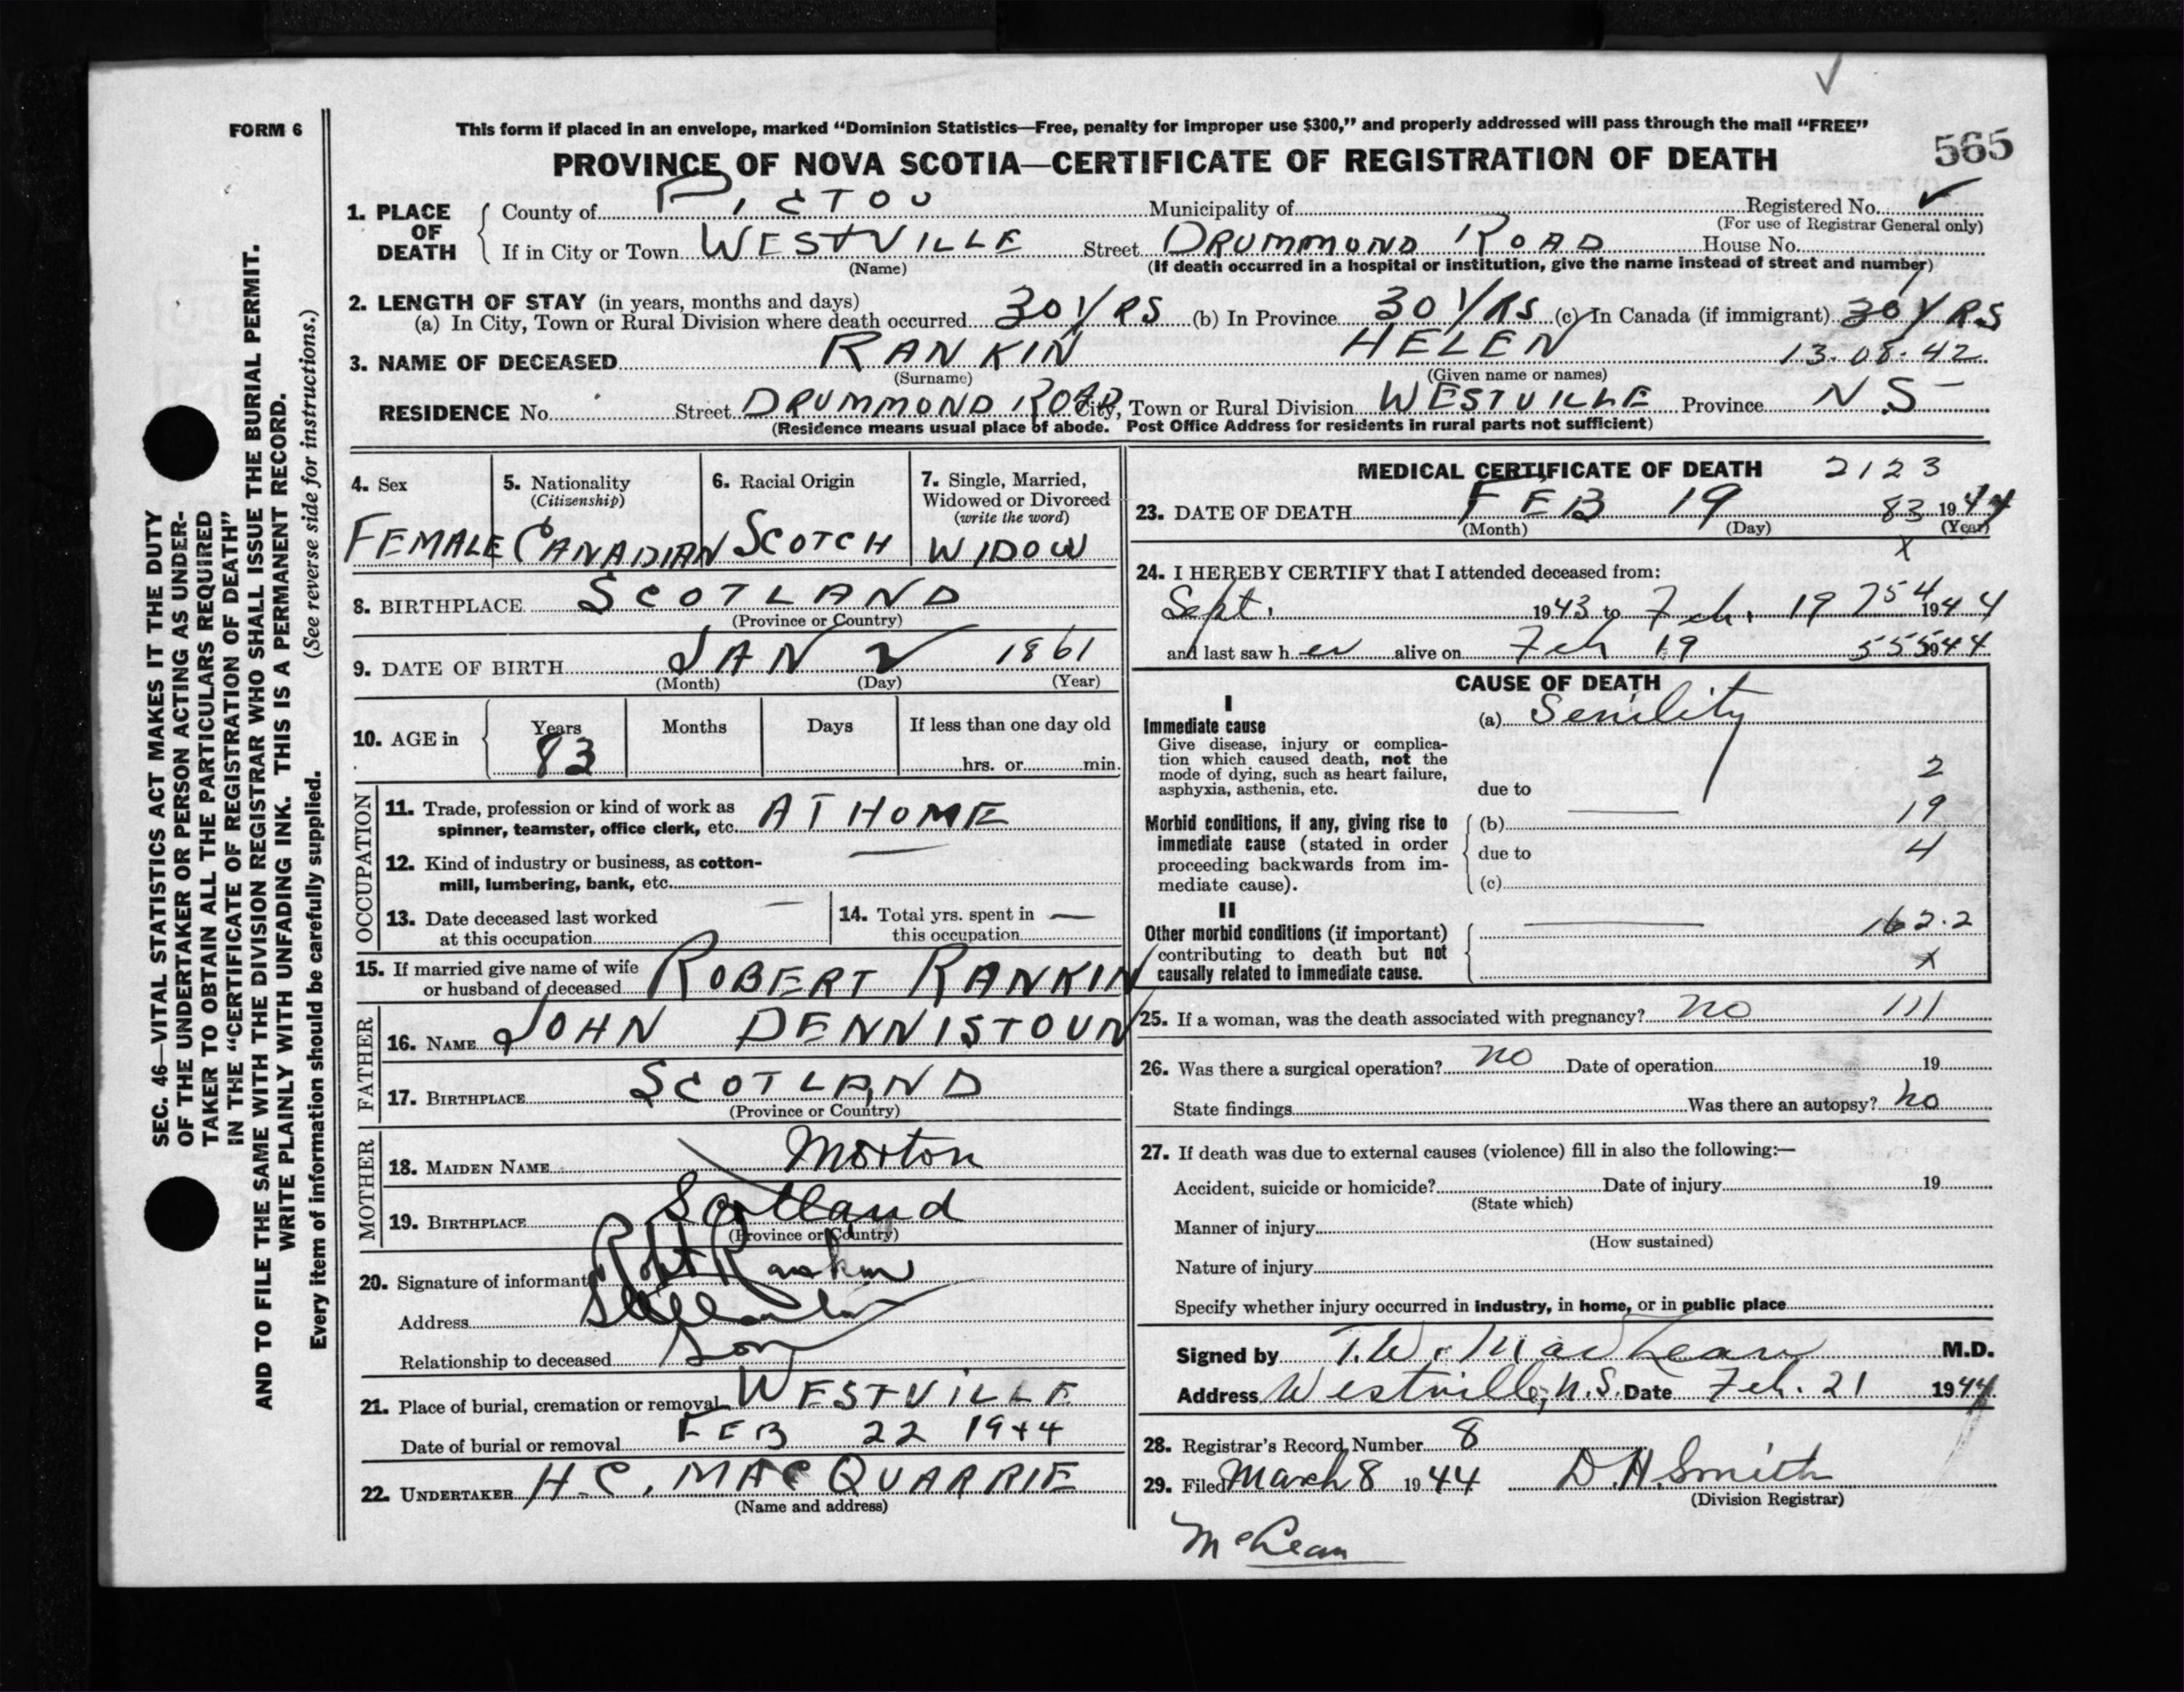 FORM 6
This form if placed in an envelope, marked "Dominion Statistics—Free, penalty for improper use $300," and properly addressed will pass through the mail "FREE"
PROVINCE OF NOVA SCOTIA—CERTIFICATE OF REGISTRATION OF DEATH
565
1. PLACE OF DEATH
County of PICTOU Municipality of Registered No. ✓
(For use of Registrar General only)
If in City or Town WESTVILLE Street DRUMMOND ROAD House No.
(Name) (If death occurred in a hospital or institution, give the name instead of street and number)
2. LENGTH OF STAY (in years, months and days)
(a) In City, Town or Rural Division where death occurred 30 YRS (b) In Province 30 YRS (c) In Canada (if immigrant) 30 YRS
3. NAME OF DECEASED RANKIN HELEN 13.08.42
(Surname) (Given name or names)
RESIDENCE No. Street DRUMMOND ROAD City, Town or Rural Division WESTVILLE Province N.S-
(Residence means usual place of abode. Post Office Address for residents in rural parts not sufficient)
4. Sex
FEMALE
5. Nationality
(Citizenship)
CANADIAN
6. Racial Origin
SCOTCH
7. Single, Married,
Widowed or Divorced
(write the word)
WIDOW
8. BIRTHPLACE SCOTLAND
(Province or Country)
9. DATE OF BIRTH JAN 2 1861
(Month) (Day) (Year)
10. AGE in Years Months Days If less than one day old
83 hrs. or min.
OCCUPATION
11. Trade, profession or kind of work as
spinner, teamster, office clerk, etc. AT HOME
12. Kind of industry or business, as cotton-
mill, lumbering, bank, etc. —
13. Date deceased last worked —
at this occupation
14. Total yrs. spent in —
this occupation
15. If married give name of wife
or husband of deceased ROBERT RANKIN
FATHER
16. NAME JOHN DENNISTOUN
17. BIRTHPLACE SCOTLAND
(Province or Country)
MOTHER
18. MAIDEN NAME Morton
19. BIRTHPLACE Scotland
(Province or Country)
20. Signature of informant Robt Rankin
Address
Relationship to deceased Son
21. Place of burial, cremation or removal WESTVILLE
Date of burial or removal FEB 22 1944
22. UNDERTAKER H.C. MACQUARRIE
(Name and address)
MEDICAL CERTIFICATE OF DEATH 2123
23. DATE OF DEATH FEB 19 83 1944
(Month) (Day) (Year)
X
24. I HEREBY CERTIFY that I attended deceased from:
Sept. 1943 to Feb. 19 754 1944
and last saw her alive on Feb 19 555 1944
CAUSE OF DEATH
I
Immediate cause
Give disease, injury or complica-
tion which caused death, not the
mode of dying, such as heart failure,
asphyxia, asthenia, etc.
(a) Senility
2
due to
19
Morbid conditions, if any, giving rise to
immediate cause (stated in order
proceeding backwards from im-
mediate cause).
(b)
due to 4
(c)
II
Other morbid conditions (if important)
contributing to death but not
causally related to immediate cause.
162.2
X
25. If a woman, was the death associated with pregnancy? no 111
26. Was there a surgical operation? no Date of operation 19
State findings Was there an autopsy? no
27. If death was due to external causes (violence) fill in also the following:—
Accident, suicide or homicide? Date of injury 19
(State which)
Manner of injury
(How sustained)
Nature of injury
Specify whether injury occurred in industry, in home, or in public place
Signed by T.W. MacLean M.D.
Address Westville, N.S. Date Feb. 21 1944
28. Registrar's Record Number 8
29. Filed March 8 1944 D.H. Smith
(Division Registrar)
McLean
SEC. 46—VITAL STATISTICS ACT MAKES IT THE DUTY
OF THE UNDERTAKER OR PERSON ACTING AS UNDER-
TAKER TO OBTAIN ALL THE PARTICULARS REQUIRED
IN THE "CERTIFICATE OF REGISTRATION OF DEATH"
AND TO FILE THE SAME WITH THE DIVISION REGISTRAR WHO SHALL ISSUE THE BURIAL PERMIT.
WRITE PLAINLY WITH UNFADING INK. THIS IS A PERMANENT RECORD.
Every item of information should be carefully supplied. (See reverse side for instructions.)